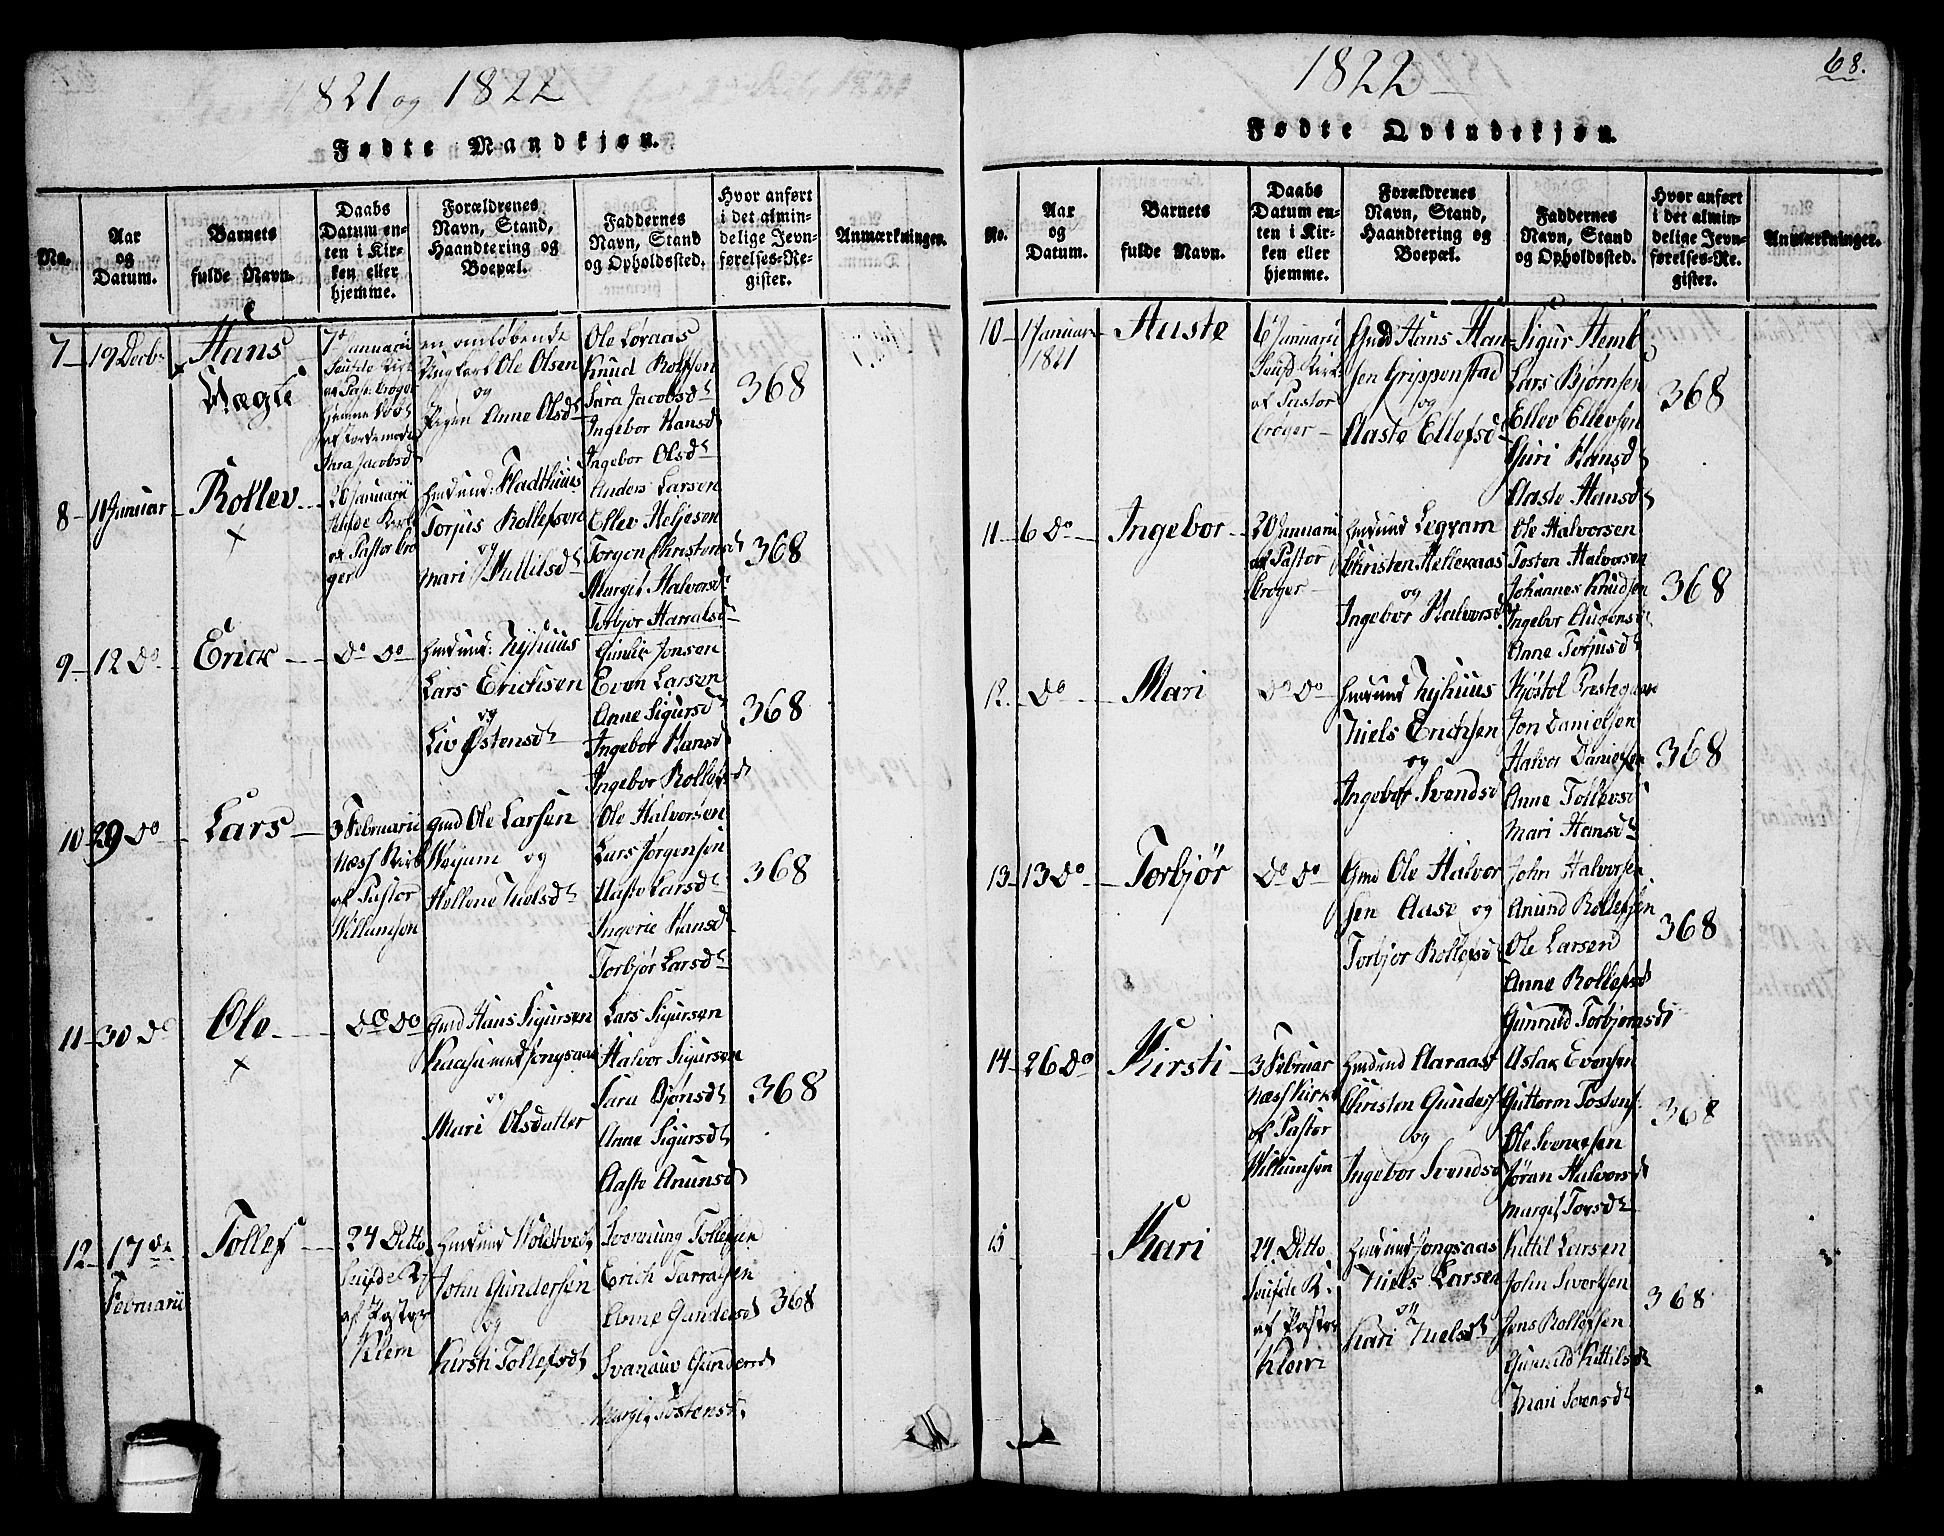 1821 og 1822
Fødte Mandkjøn.
No.
Aar
og
Datum.
Barnets
fulde Navn.
Daabs
Datum en-
ten i Kir-
ken eller
hjemme.
Forældrenes
Navn, Stand,
Haandtering og
Boepæl.
Faddernes
Navn, Stand
og Opholdssted.
Hvor anført
i det almin-
delige Jevn-
førelses-Re-
gister.
Anmærkninger.
7
19 Decbr
Hans
7de Januarii
en omløbende
Ole Olsen
og
Pigen Anne Olsdt
Knud Rolfsen
Sara Jacobsdt
Ingebor Hansdt
Ingebor Olsdt
368
8
11 Januar
Rollev
20 Januarii
af Pastor Crø
ger
Huusmd: Fladthuus
Torjus Rollefsen
og
Mari Kittilsdt
Anders Larsen
Ellev Heljesen
Torgon Christensdt
Margit Halvorsdt
Torbjør Harralsdt
368
9
12 Do
Erick
Do Do
Huusmd: Nyhuus
Lars Erichsen
og
Liv Østensdt
Gunder Jonsen
Even Larsen
Anne Sigursdt
Ingebor Hansdt
Ingebor Rollefsdt
368
10
29 Do
Lars
3 Februarii
Næss Kirke
af Pastor
Willumsen
Gmd Ole Larsen
og
Hellene Nielsdt
Ole Halvorsen
Lars Jørgensen
Aaste Larsdt
Ingerie Hansdt
Torbjør Larsdt
368
11
30 Do
Ole
Do Do
Gmd Hans Sigursen
og
Mari Olsdatter
Lars Sigursen
Halvor Sigursen
Sara Bjønsdt
Anne Sigursdt
Aaste Anunsdt
368
12
17de
Februarii
Tollef
24 Ditto
af Pastor
Klem
Huusmd Holdtvedt
John Gundersen
og
Kirsti Tollefsdt
Svennung Tollefsen
Erich Tarralsen
Anne Gundersdt
Margit Tostensdt
368
1822
68.
Fødte Qvindekjøn.
No.
Aar
og
Datum.
Barnets
fulde Navn.
Daabs
Datum en-
ten i Kir-
ken eller
hjemme.
Forældrenes
Navn, Stand,
Haandtering og
Boepæl.
Faddernes
Navn, Stand
og Opholdssted.
Hvor anført
i det almin-
delige Jevn-
førelses-Re-
gister.
Anmærkninger.
10
1 Januar
1821
Aaste
6 Januarii
af Pastor
Crøger
Gmd Hans Han
sen Grippenstad
og
Aaste Ellefsdt
Sigur Hemb
Lars Bjørnsen
Ellev Ellevsen
Guri Hansdt
Aaste Hansdt
368
11
6 Do
Ingebor
20 Januarii
af Pastor
Crøger
Huusmd Legram
Christen Hellekaas
og
Ingebor Halvorsdt
Ole Halvorsen
Tosten Halvorsen
Johannes Knudsen
Ingebor Augonsdt
Anne Torjusdt
368
12
Do
Mari
Do Do
Huusmd Nyhuus
Niels Erichsen
og
Ingebor Svendsdt
Kjøstol Prestegaard
Jon Danielsen
Halvor Danielsen
Anne Tollevsdt
Mari Hansdt
368
13
13 Do
Torbjør
Do Do
Gmd Ole Halvor
sen Aase og
Torbjør Rollefsdt
John Halvorsen
Anund Rollefsen
Ole Larsen
Anne Rollefsdt
Gunnild Torbjørnsdt
368
14
26 Do
Kirsti
3 Februar
Næss Kirke
af Pastor
Willumsen
Huusmd Aaraas
Christen Gunders
og
Ingebor Svendsdt
Aslak Evensen
Guttorm Tostens
Ole Svennesen
Jøran Halvorsdt
Margit Torsdt
368
15
Kari
24 Ditto
af Pastor
Klem
Huusmd Jongsaas
Niels Larsen
og
Kari Nielsdt
Kittil Larsen
John Sivertsen
Jens Rollefsen
Gunnild Kittilsdt
Mari Svensdt
368